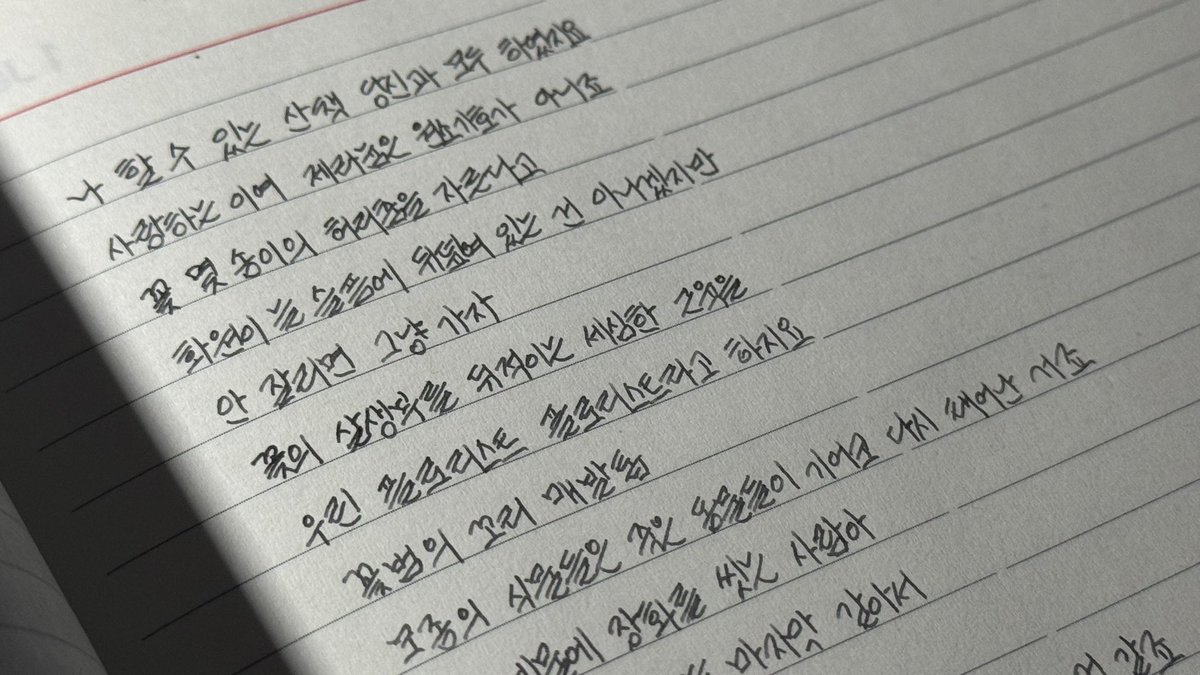 나 할 수 있는 산책 당신과 모두 하였지요
사랑하는 이여 제라늄은 원소기호가 아니죠
꽃 몇 송이의 허리춤을 자른다고
화원이 늘 슬픔에 뒤덮여 있는 건 아니겠지만
안 잘리면 그냥 가자
꽃의 살생부를 뒤적이는 세심한 근육을
우린 플로리스트 플로리스트라고 하지요
꽃범의 꼬리 매발톱
모종의 식물들은 죽은 동물들이 기어코 다시 태어난 거죠
장화를 씻는 사람아
마지막 같아서
같죠